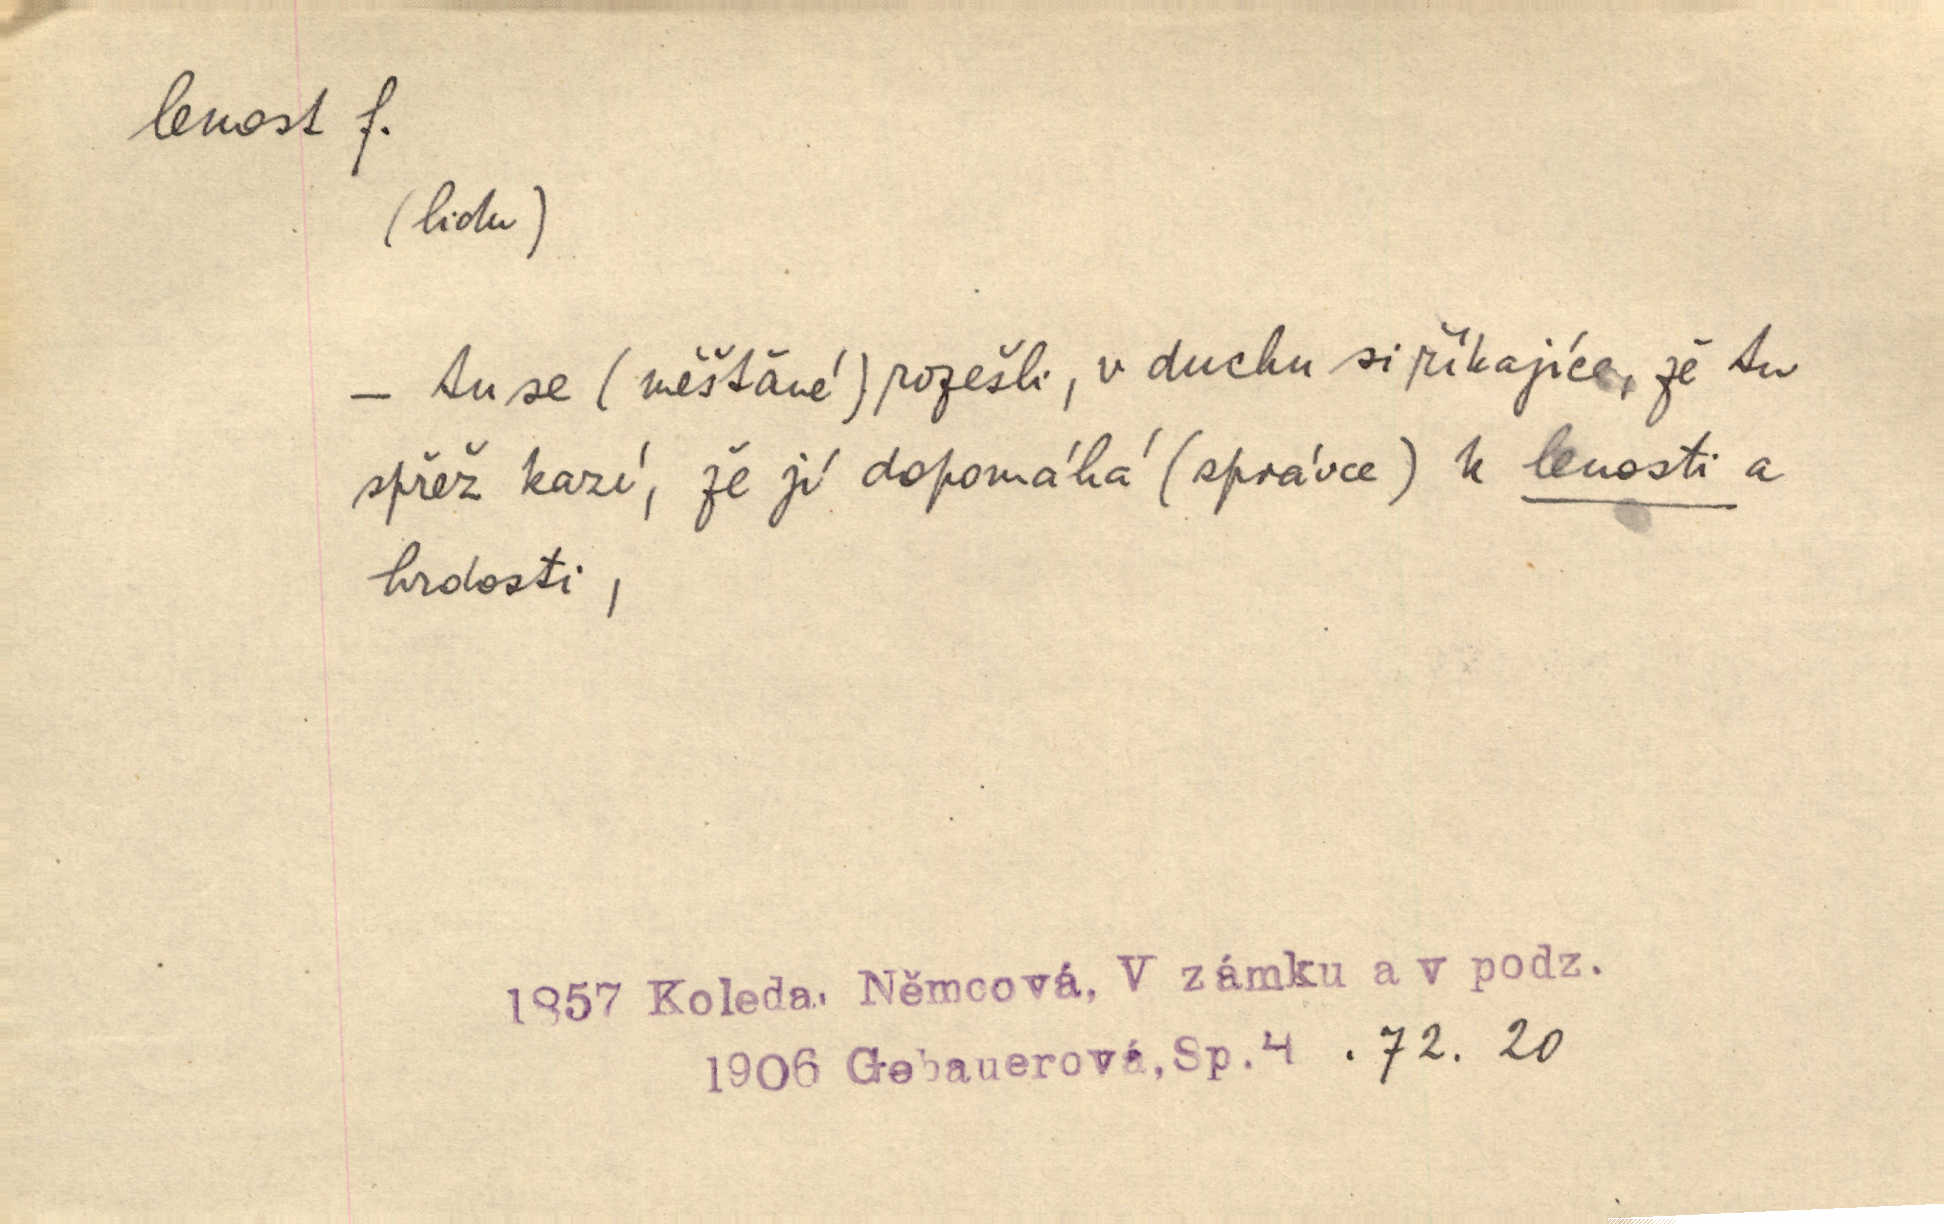 lenost f.
(lidu)
– tu se (měšťané) rozešli, v duchu si říkajíce, že tu
spřež kazí, že jí dopomáhá (správce) k lenosti a
hrdosti,
1857 Koleda. Němcová, V zámku a v podz.
1906 Gebauerová, Sp. 4 . 72. 20